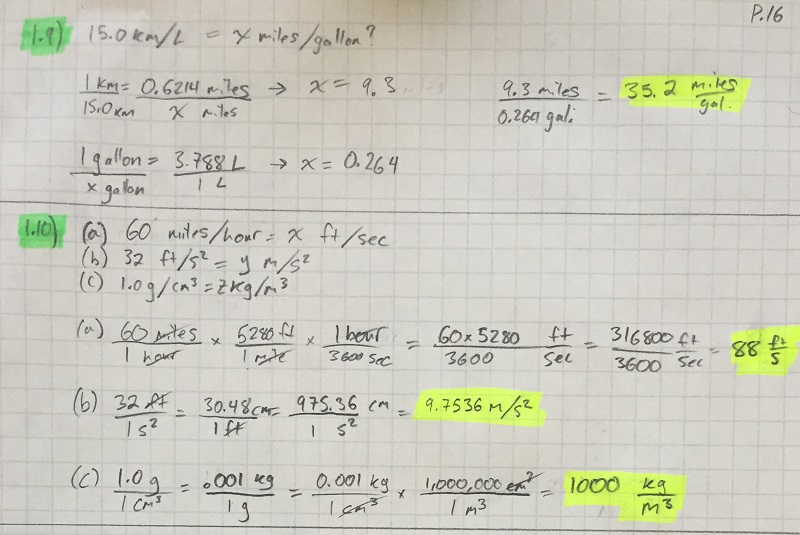 P.16
1.9) 15.0 km/L = x miles/gallon?
1 km/15.0 km = 0.6214 miles/x miles → x = 9.3
9.3 miles/0.264 gal. = 35.2 miles/gal.
1 gallon/x gallon = 3.788 L/1 L → x = 0.264
1.10) (a) 60 miles/hour = x ft/sec
(b) 32 ft/s² = y m/s²
(c) 1.0 g/cm³ = z kg/m³
(a) 60 miles/1 hour × 5280 ft/1 mile × 1 hour/3600 sec = 60×5280/3600 ft/sec = 316800/3600 ft/sec = 88 ft/s
(b) 32 ft/1 s² = 30.48 cm/1 ft = 975.36/1 cm/s² = 9.7536 m/s²
(c) 1.0 g/1 cm³ = .001 kg/1 g = 0.001 kg/1 cm³ × 1,000,000 cm³/1 m³ = 1000 kg/m³